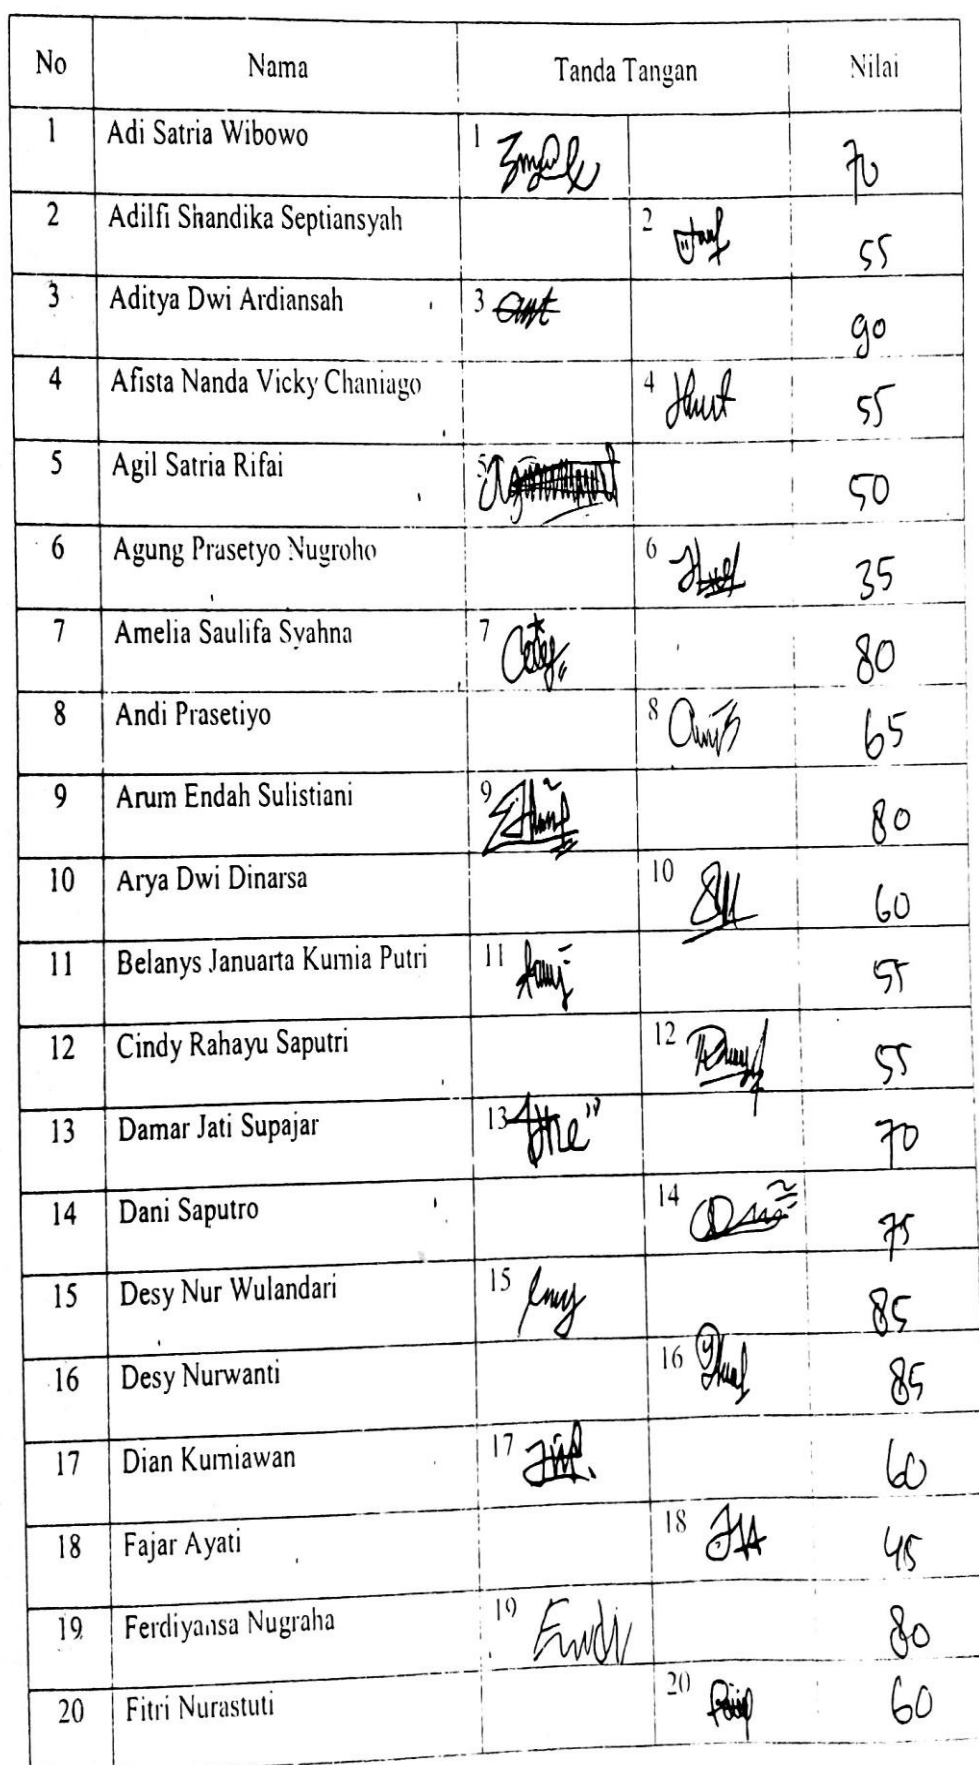 No Nama Tanda Tangan Nilai
1 Adi Satria Wibowo 1 70
2 Adilfi Shandika Septiansyah 2 55
3 Aditya Dwi Ardiansah 3 90
4 Afista Nanda Vicky Chaniago 4 55
5 Agil Satria Rifai 5 50
6 Agung Prasetyo Nugroho 6 35
7 Amelia Saulifa Syahna 7 80
8 Andi Prasetiyo 8 65
9 Arum Endah Sulistiani 9 80
10 Arya Dwi Dinarsa 10 60
11 Belanys Januarta Kurnia Putri 11 55
12 Cindy Rahayu Saputri 12 55
13 Damar Jati Supajar 13 70
14 Dani Saputro 14 75
15 Desy Nur Wulandari 15 85
16 Desy Nurwanti 16 85
17 Dian Kurniawan 17 60
18 Fajar Ayati 18 45
19 Ferdiyansa Nugraha 19 80
20 Fitri Nurastuti 20 60